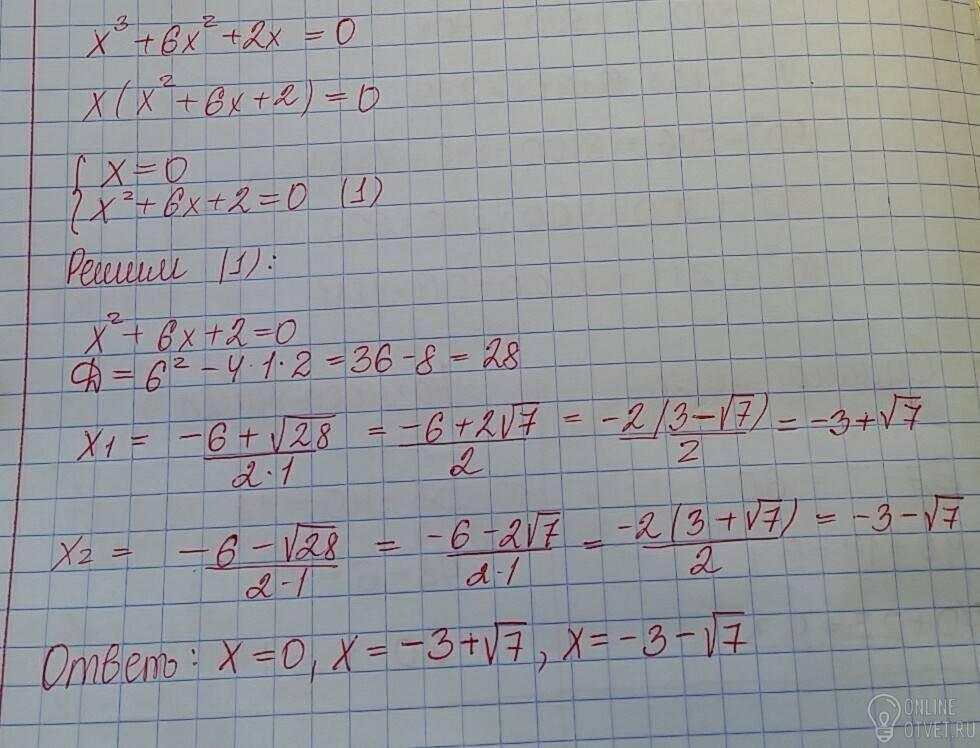 x³ + 6x² + 2x = 0
x(x² + 6x + 2) = 0
{ x = 0
{ x² + 6x + 2 = 0 (1)
Решим (1):
x² + 6x + 2 = 0
D = 6² - 4·1·2 = 36 - 8 = 28
x1 = (-6 + √28)/(2·1) = (-6 + 2√7)/2 = -2(3 - √7)/2 = -3 + √7
x2 = (-6 - √28)/(2·1) = (-6 - 2√7)/(2·1) = -2(3 + √7)/2 = -3 - √7
Ответ: x = 0, x = -3 + √7, x = -3 - √7
ONLINE
OTVET.RU